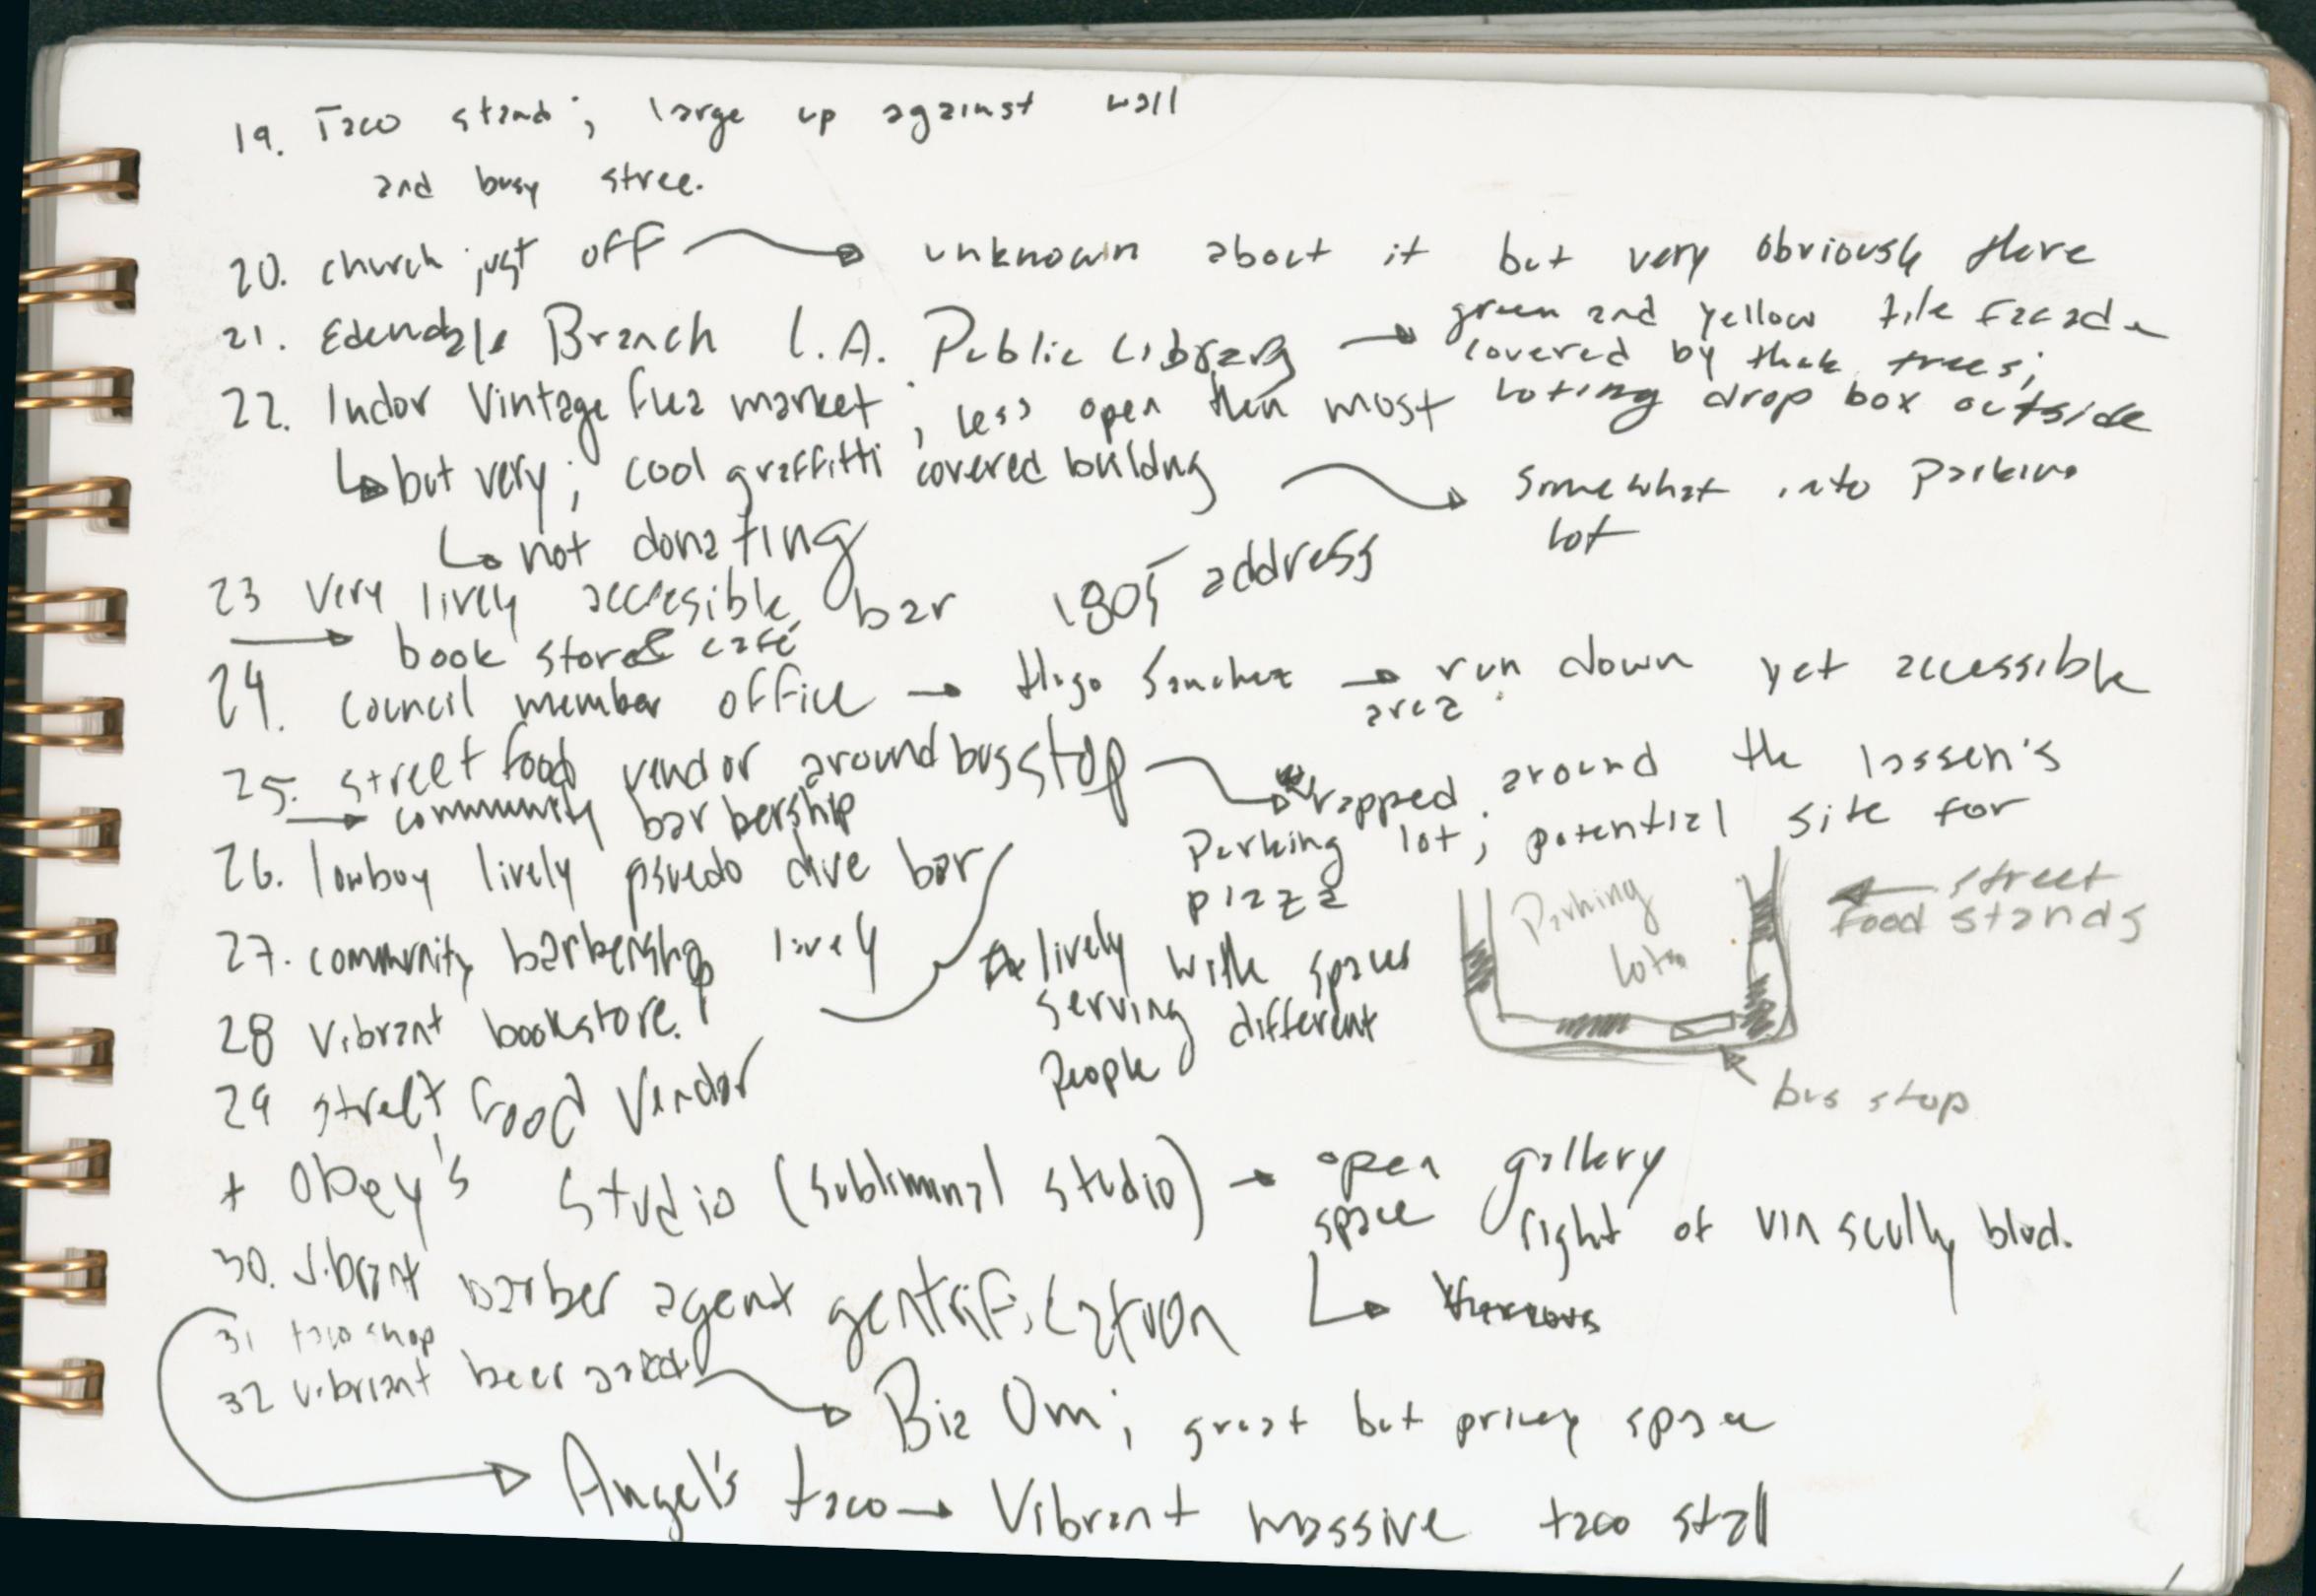 19. Taco stand; large up against wall
and busy stree.
20. church just off → unknown about it but very obviously there
21. Edendale Branch L.A. Public Library → green and yellow tile facade
covered by thick trees;
voting drop box outside
22. Indor Vintage flea market; less open then most
↳ but very; cool graffitti covered buildng → somewhat into parking
lot
↳ not donating
23 Very lively accesible bar 1805 address
→ book store & café
24. council member office → Hugo Sanchez → run down yet accessible
area.
25. street food vendor around bus stop → wrapped around the lassen's
parking lot; potential site for
piazza
→ community barbership
26. lowboy lively psuedo dive bar
27. community barbership lively
28 Vibrant bookstore.
29 street food vendor
lively with spaces
serving different
people
Parking
lot
← street
food stands
bus stop
+ Obey's Studio (subliminal studio) → open gallery
space right of vin scully blvd.
30. vibrant barber agent gentrification
31 taco shop
32 vibrant beer → Bia Om; great but pricey space
Angel's taco → Vibrant massive taco stall